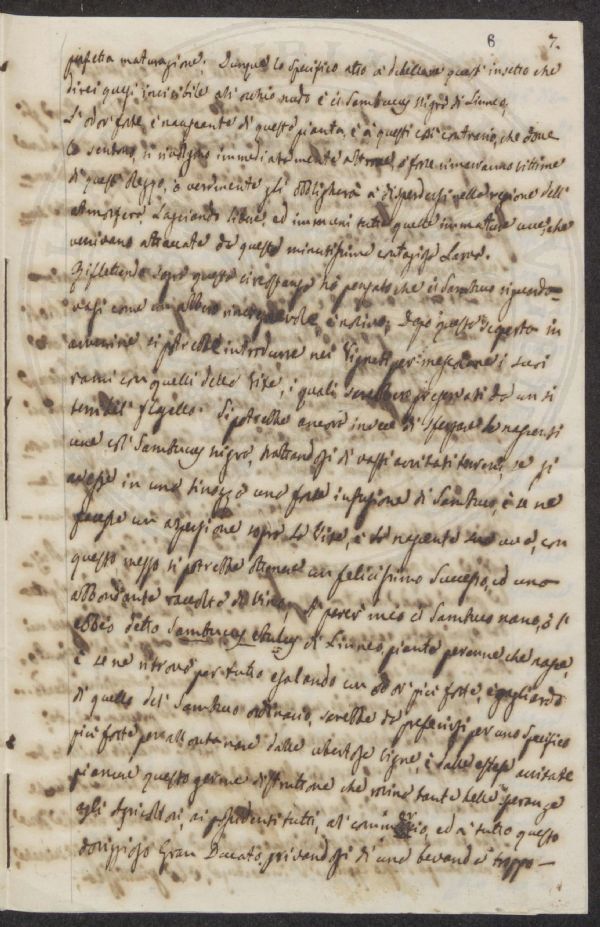 B 7.
perfetta maturazione. Dunque lo specifico atto a debellare questi insetto che
direi quasi invisibile all'occhio nudo è il Sambucus nigra di Linneo,
L'odor forte, e nauseante di questa pianta, è a questi così contrario, che dove
lo sentono, si rivolgono immediatamente altrove, o forse rimarranno vittime
di quest' olezzo, o veramente gli obbligherà a disperdersi nella regione dell'
atmosfera lasciando libere, ed immuni tutte quelle immature uve, che
venivano attaccate da queste minutissime contagiose Larve.
Riflettendo sopra questa circostanza ho pensato che il Sambuco
come un albero dopo questa scoperta in
avvenire, si potrebbe introdurre nei Vigneti per mescolare i suoi
rami con quelli delle Vite, i quali sarebbero preservati da un sì
terribil flagello. Si potrebbe ancora invece di le nascenti
uve col Sambucus nigra, trattandosi di vasti avvitati terreni, se si
avesse in una tinozza una forte infusione di Sambuco, e se ne
facesse un aspersione sopra le Vite, e le nascente sue uve, con
questo mezzo si potrebbe ottenere un felicissimo successo, ed una
abbondante raccolta di Vino; A parer mio il Sambuco nano, o l'
ebbio detto Sambucus ebulus di Linneo, pianta perenne che nasce,
e se ne ritrova per tutto esalando un odor più forte, e gagliardo
di quello del Sambuco ordinario, sarebbe da preferirsi per uno specifico
più forte per allontanare dalle ubertose vigne, e dalle estese avvitate
pianure questo germe distruttore che rovina tante belle speranze
agli Agricoltori, ai possidenti tutti, al commercio, ed a tutto questo
Gran Ducato, privandosi di una bevanda troppo —